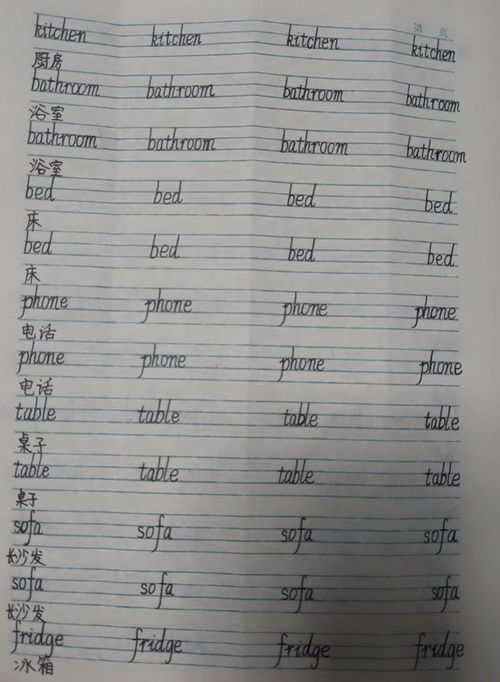 第 页
kitchen kitchen kitchen kitchen
厨房
bathroom bathroom bathroom bathroom
浴室
bathroom bathroom bathroom bathroom
浴室
bed bed bed bed
床
bed bed bed bed
床
phone phone phone phone
电话
phone phone phone phone
电话
table table table table
桌子
table table table table
桌子
sofa sofa sofa sofa
长沙发
sofa sofa sofa sofa
长沙发
fridge fridge fridge fridge
冰箱